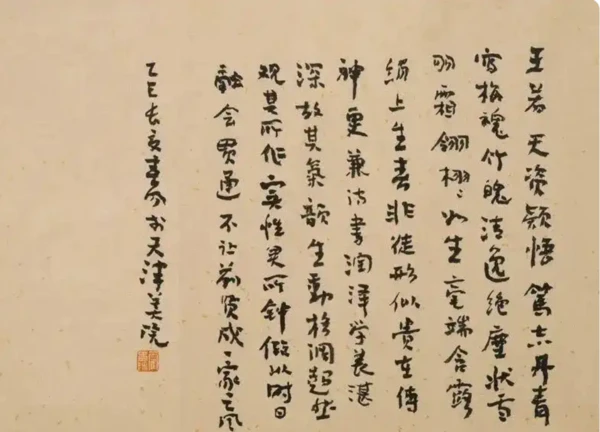 王若天资颖悟笃志丹青
写梅魂竹魄清逸绝尘状雪
羽霜翎栩栩如生毫端含露
纸上生春非徒形似贵在传
神更兼诗书润泽学养湛
深故其气韵生动格调超然
观其所作实性灵所钟假以时日
融会贯通不让前贤成一家之风
乙巳春分于天津美院